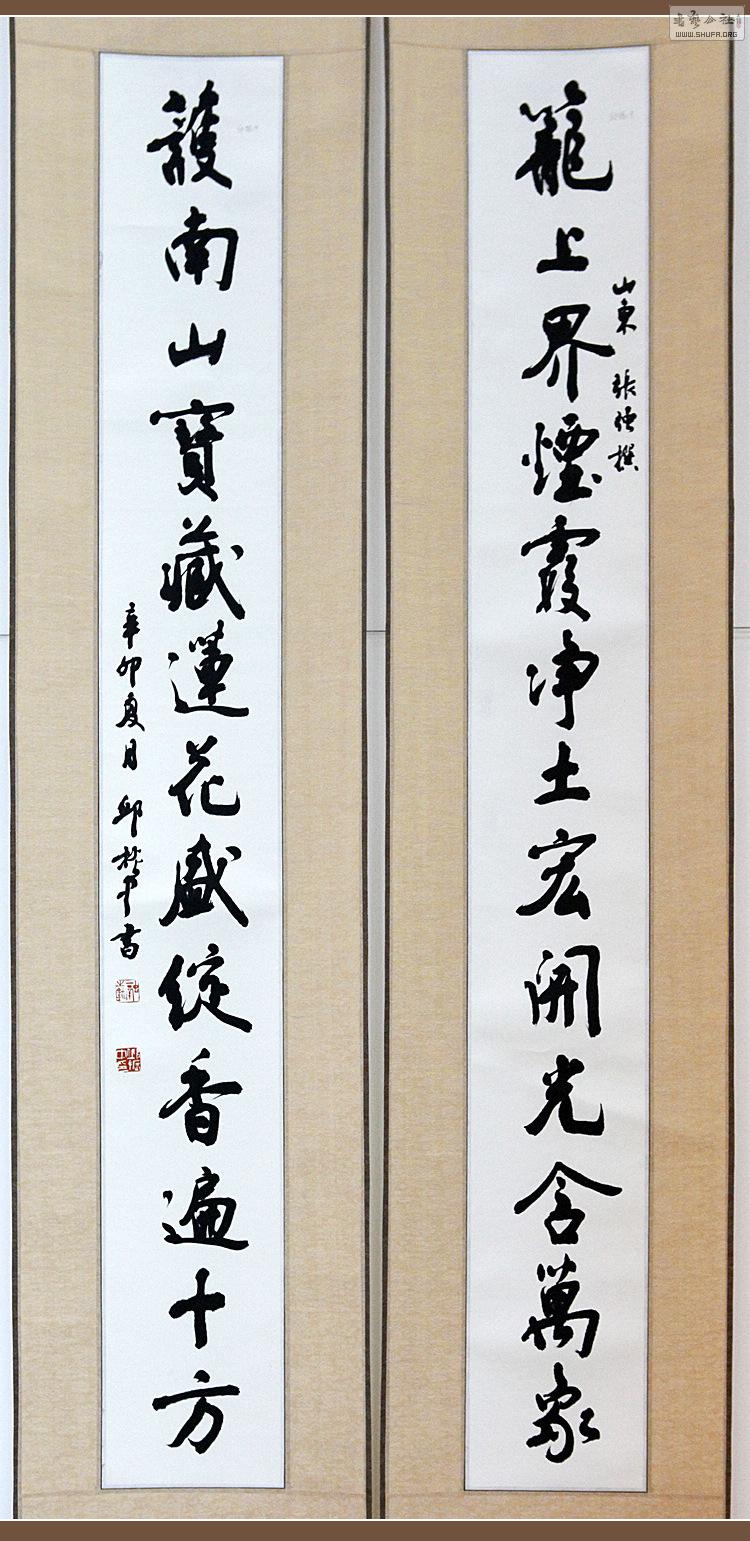 籠上界煙霞净土宏開光含萬象
山東 張 撰
護南山寶藏蓮花盛綻香遍十方
辛卯夏月邱 書
书艺公社
WWW.SHUFA.ORG